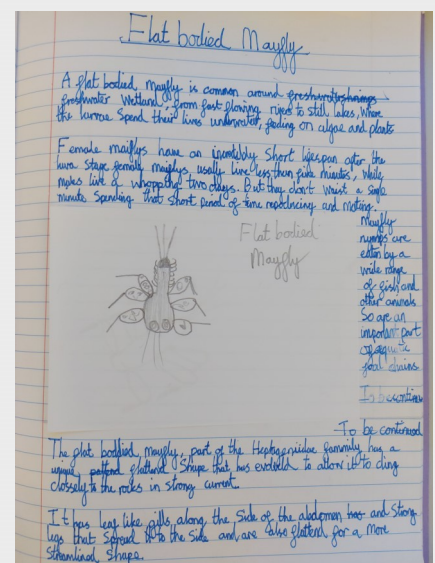 Flat bodied Mayfly
A flat bodied mayfly is common around
freshwater wetland, from fast flowing rivers to still lakes, where
the larvae spend their lives underwater, feeding on algae and plants
Female maiflys have an incredibly short lifespan after the
larva stage female maiflys usually live less than five minutes, while
males live a whopping two days. But they don't waist a single
minute spending that short period of time reproducing and mating.
Flat bodied
Mayfly
Mayfly
nymphs are
eaten by a
wide range
of fish and
other animals
So are an
important part
of
food chains
To be continued
The flat boddied, mayfly, part of the Heptageniidae fammily has a
unique flattend shape that has evolved to allow it to cling
closely to the rocks in strong current.
It has leaf like gills, along the side of the abdomen and strong
legs that spread it to the side and, are also flattend for a more
streamlined shape.